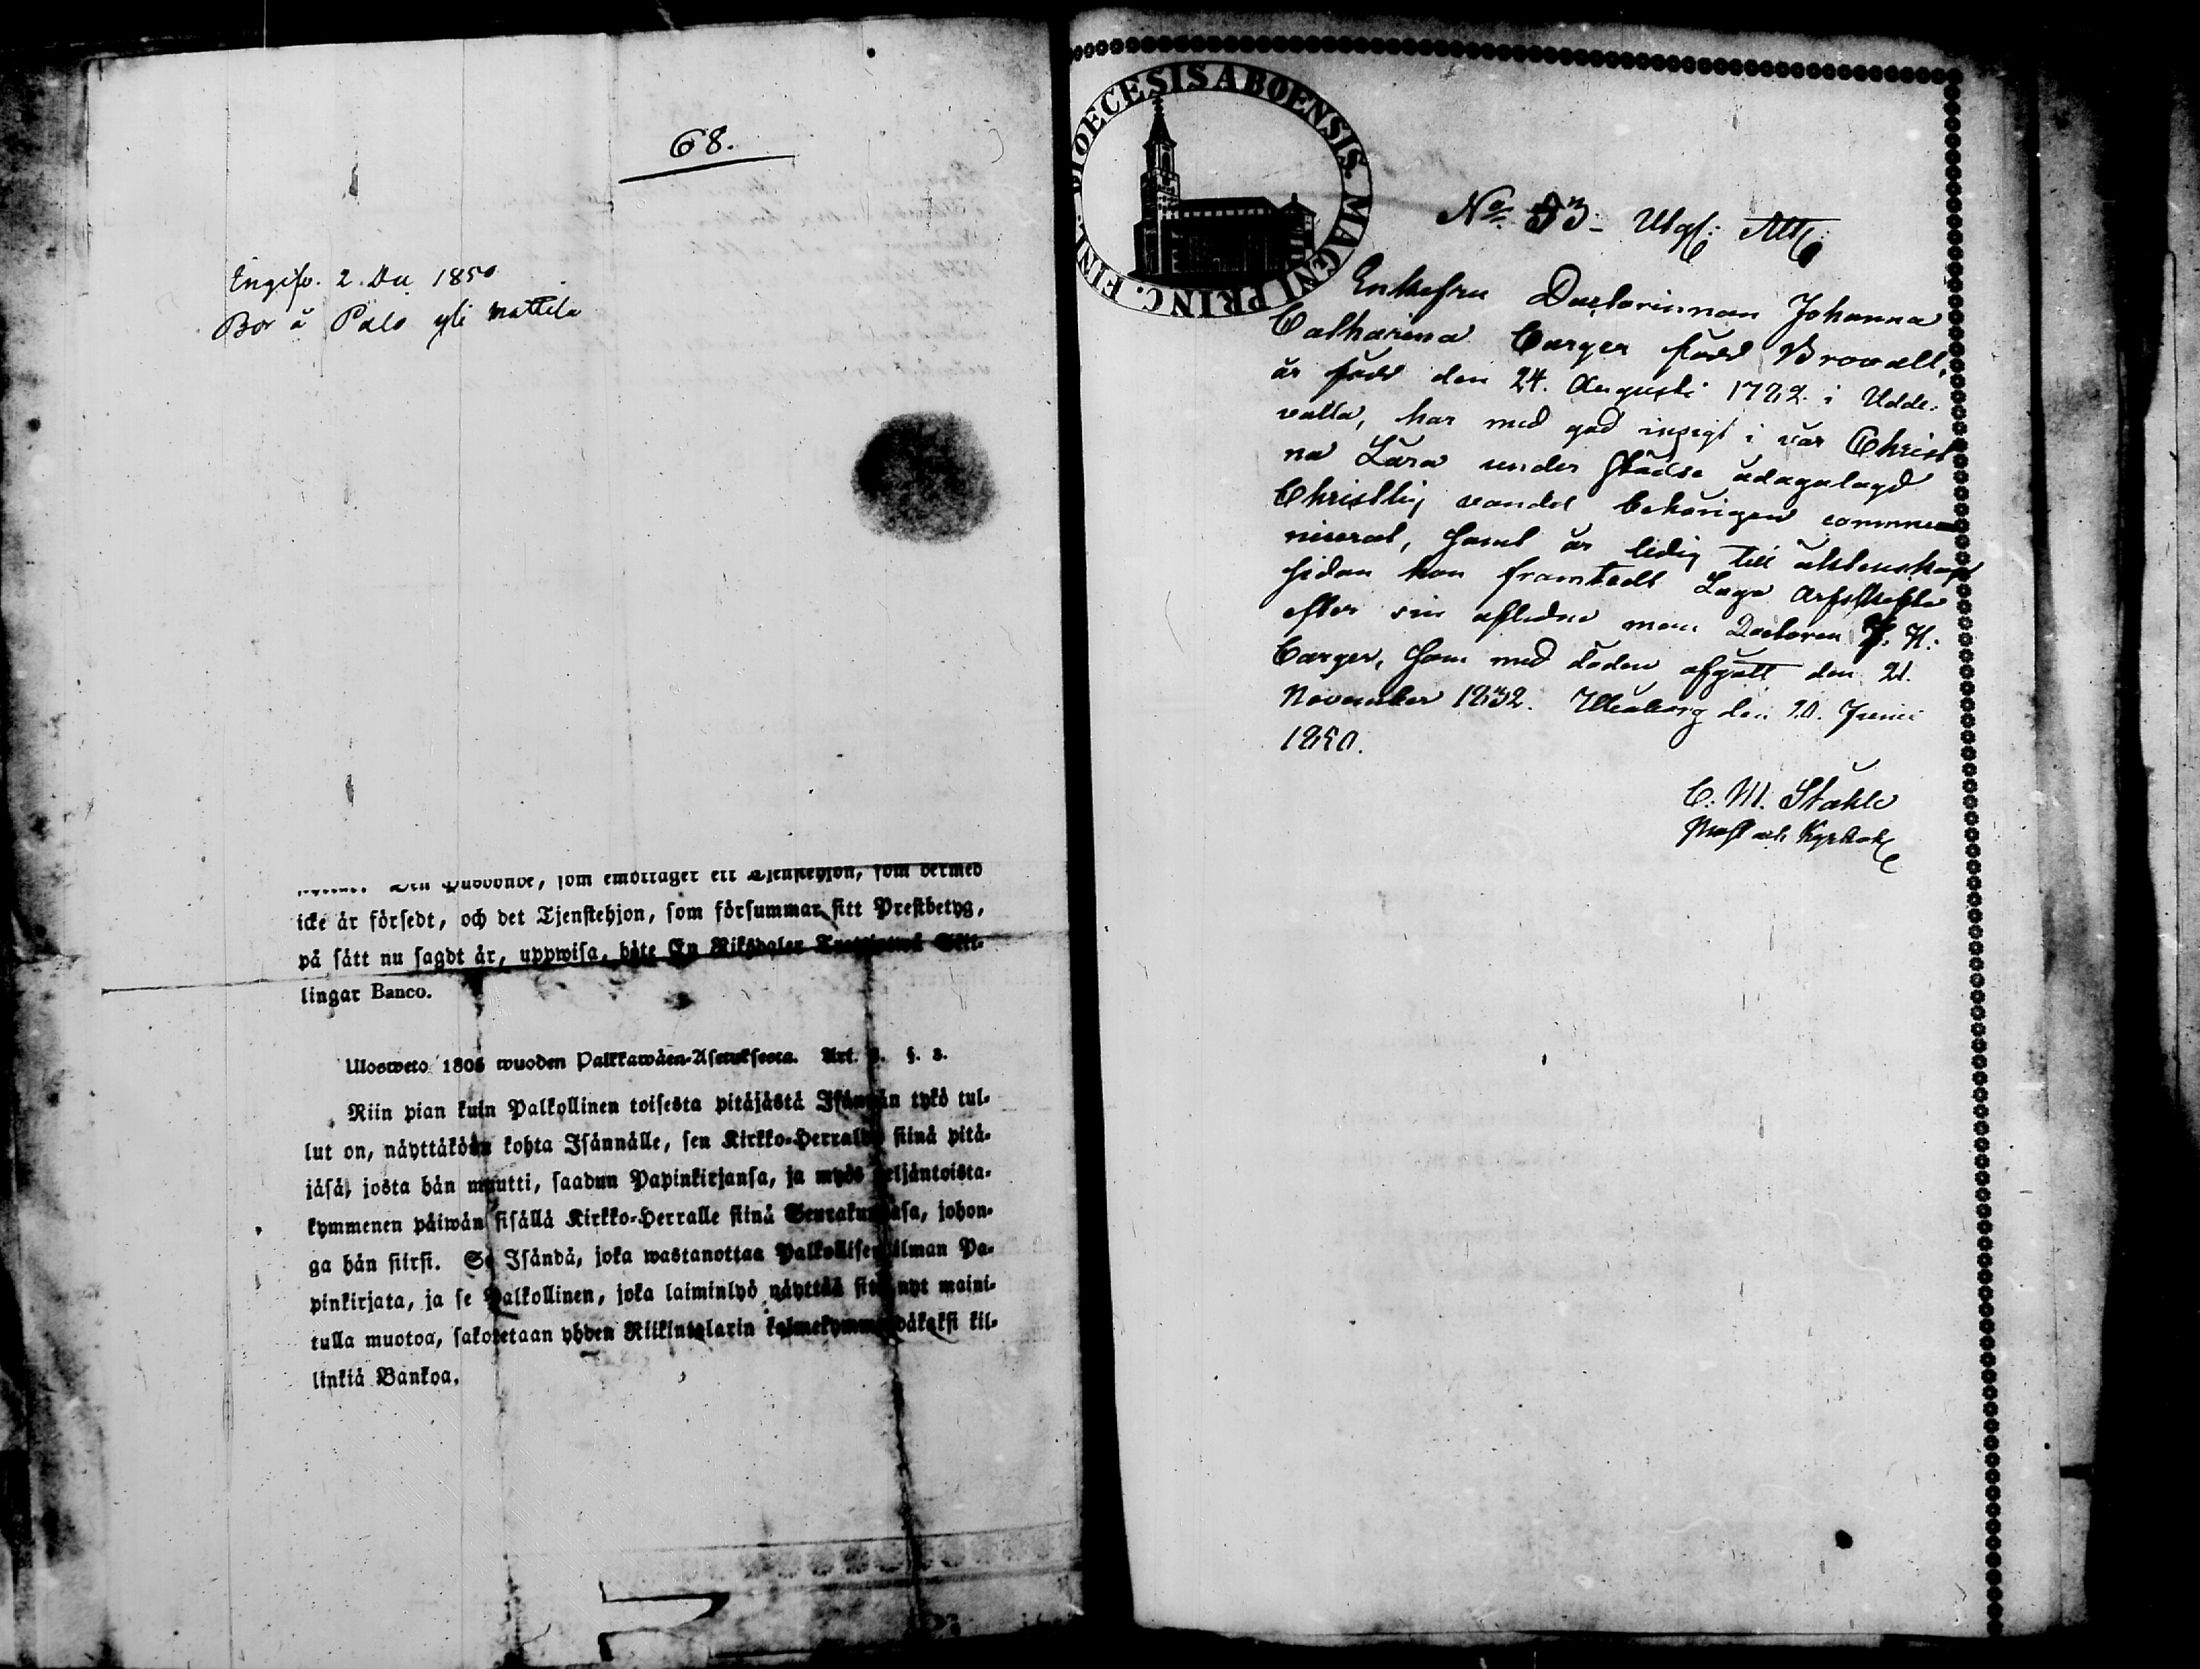 68.
Bor å Palo yli Mattila
icke är försedt, och det Tjenstehjon, som försummar sitt Prestbetyg,
på sätt nu sagdt är, uppwisa, böte En Riksdaler Trettiotwå Skil-
lingar Banco.
Ulosweto 1805 wuoden Palkkawäen-Asetuksesta. Art. §. 3.
Niin pian kuin Palkollinen toisesta pitäjästä Isännän tykö tul-
lut on, näyttäköön kohta Isännälle, sen Kirkko-Herralda siinä pitä-
jäsä, josta hän muutti, saadun Papinkirjansa, ja myös neljäntoista-
kymmenen päiwän sisällä Kirkko-Herralle siinä Seurakunnasa, johon-
ga hän siirsi. Se Isändä, joka wastanottaa Palkollisen ilman Pa-
pinkirjata, ja se Palkollinen, joka laiminlyö näyttää sitä nyt maini-
tulla muotoa, sakotetaan yhden Riikintalarin kolmekymmendäkaksi kil-
linkiä Bankoa.
DIOECESIS ABOENSIS. MAGNI PRINC. FINL.
No 83 - Utgf: Att:
Enkefru Doctorinnan Johanna
Catharina Carger född Browall,
är född den 24. Augusti 1782 i Udde-
valla, har med god insigt i vår Christ
na Lära under städse ådagalagd
Christlig vandel behörigen commu
nicerat, samt är ledig till äktenskap
sedan hon framtedt Laga Arfskifte
efter sin aflidne man Doctoren J. H.
Carger, som med döden afgått den 21.
November 1832. Uleaborg den 20. Junii
1850.
C. M. Ståhle